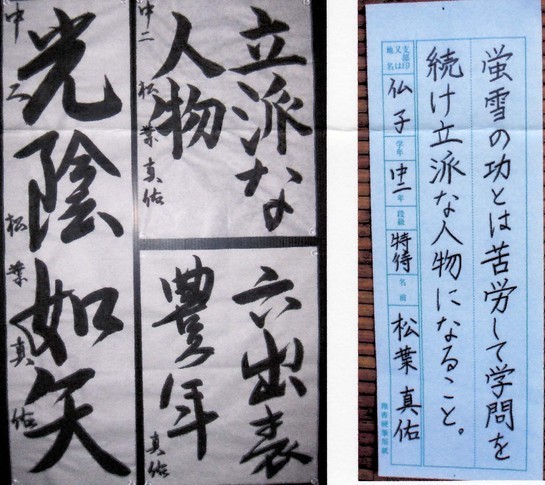 光陰如矢
中二 松葉真佑
立派な
人物
中二 松葉真佑
六出表
豊年
真佑
蛍雪の功とは苦労して学問を
続け立派な人物になること。
支部印又は地名 仏子 学年 中二年 段級 特待 名前 松葉真佑